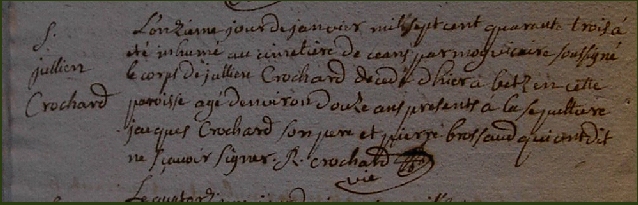 S.
jullien
Crochard
L'onzieme jour de janvier mil sept cent quarante trois a
eté inhumé au cimetiere de ceans par moy vicaire soussigné
le corps de jullien Crochard decedé d'hier a betz en cette
paroisse agé d'environ douze ans presents a la sepulture
jacques Crochard son pere et pierre brossaud qui ont dit
ne sçavoir signer. R. Crochard
vic
Le quator